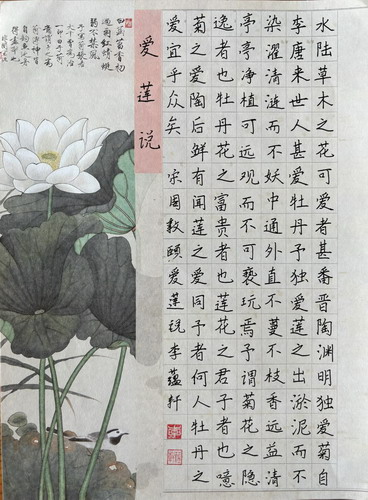 爱莲说
水陆草木之花可爱者甚番晋陶渊明独爱菊自
李唐来世人甚爱牡丹予独爱莲之出淤泥而不
染濯清涟而不妖中通外直不蔓不枝香远益清
亭亭净植可远观而不可亵玩焉予谓菊花之隐
逸者也牡丹花之富贵者也莲花之君子者也噫
菊之爱陶后鲜有闻莲之爱同予者何人牡丹之
爱宜乎众矣 宋周敦颐爱莲说李蕴轩
白菡萏香初
过雨红蜻蜓
弱不禁风